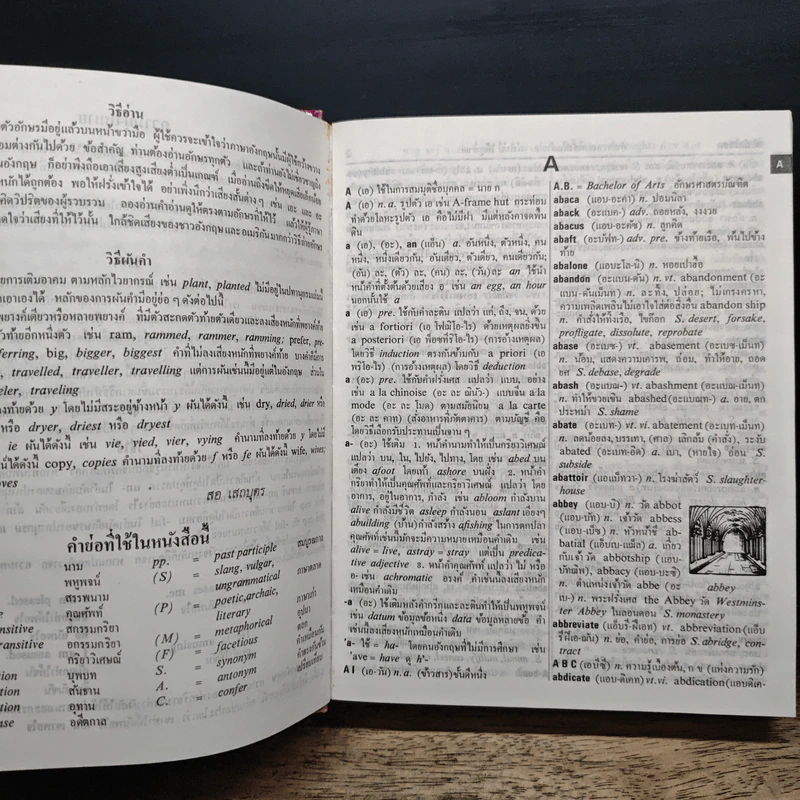 วิธีอ่าน
ตัวอักษรมีอยู่แล้วบนหน้าขวามือ ผู้ใช้ควรจะเข้าใจว่าภาษาอังกฤษนั้นมีผู้ใช้กว้างขวาง
วิธีผันคำ
เช่น plant, planted ไม่มีอยู่ในปทานุกรมเล่มนี้
หลักของการผันคำมีอยู่ย่อ ๆ ดังต่อไปนี้
เช่น ram, rammed, rammer, ramming; prefer, pre-
ferring, big, bigger, biggest คำที่ไม่ลงเสียงหนักที่พยางค์ท้าย
travelled, traveller, travelling แต่การผันเช่นนี้มีอยู่แต่ในอังกฤษ ส่วนใน
traveling
ลงท้ายด้วย y โดยไม่มีสระอยู่ข้างหน้า y ผันได้ดังนี้ เช่น dry, dried, drier หรือ
หรือ dryer, driest หรือ dryest
ie ผันได้ดังนี้ เช่น vie, vied, vier, vying คำนามที่ลงท้ายด้วย y โดยไม่มี
ผันได้ดังนี้ copy, copies คำนามที่ลงท้ายด้วย f หรือ fe ผันได้ดังนี้ wife, wives;
สอ เสถบุตร
คำย่อที่ใช้ในหนังสือนี้
นาม pp. = past participle
พหูพจน์ (S) = slang, vulgar,
สรรพนาม ungrammatical
คุณศัพท์ (P) = poetic, archaic,
สกรรมกริยา literary
อกรรมกริยา (M) = metaphorical
กริยาวิเศษณ์ (F) = facetious
บุพบท S. = synonym
สันธาน A. = antonym
อุทาน C. = confer
อดีตกาล
A
A (เอ) ใช้ในการสมมุติชื่อบุคคล = นาย ก
A (เอ) n. a. รูปตัว เอ เช่น A-frame hut กระท่อม
ทำด้วยไหทะรูปตัว เอ คือไม่มีฝา มีแต่หลังคาจดพื้น
ดิน
a (เอ), (อะ), an (แอ็น) a. อันหนึ่ง, ตัวหนึ่ง, คน
หนึ่ง, หนึ่งเดียวกัน, อันเดียว, ตัวเดียว, คนเดียวกัน;
(อัน) ละ, (ตัว) ละ, (คน) ละ, (วัน) ละ an ใช้นำ
หน้าคำที่ตั้งต้นด้วยเสียง อ เช่น an egg, an hour
นอกนั้นใช้ a
a (เอ) pre. ใช้กับคำละติน แปลว่า แก่, ถึง, จน, ด้วย
เช่น a fortiori (เอ ไฟฌิโอ-ไร) ด้วยเหตุผลยิ่งขึ้น
a posteriori (เอ พ็อซทีริโอ-ไร) (การอ้างเหตุผล)
โดยวิธี induction ตรงกันข้ามกับ a priori (เอ
พริโอ-ไร) (การอ้างเหตุผล) โดยวิธี deduction
a (อะ) pre. ใช้กับคำฝรั่งเศส แปลว่า แบบ, อย่าง
เช่น a la chinoise (อะ ละ ฌินัว-) แบบจีน a la
mode (อะ ละ โมด) ตามสมัยนิยม a la carte
(อะ ละ คาท) (สั่งอาหารที่ภัตตาคาร) ตามบัญชี คือ
โดยวิธีเลือกรับประทานเป็นจาน ๆ
a- (อะ) ใช้เติม 1. หน้าคำนามทำให้เป็นกริยาวิเศษณ์
แปลว่า บน, ใน, ไปยัง, ไปทาง, โดย เช่น abed บน
เตียง afoot โดยเท้า, ashore บนฝั่ง 2. หน้าคำ
กริยาทำให้เป็นคุณศัพท์และกริยาวิเศษณ์ แปลว่า โดย
อาการ, อยู่ในอาการ, กำลัง เช่น abloom กำลังบาน
alive กำลังมีชีวิต asleep กำลังนอน aslant เอียงๆ
abuilding (บ้าน) กำลังสร้าง afishing ในการตกปลา
คุณศัพท์เช่นนี้มักจะมีความหมายเหมือนคำเดิม เช่น
alive = live, astray = stray แต่เป็น predica-
tive adjective 3. หน้าคำคุณศัพท์ แปลว่า ไม่ หรือ
อ- เช่น achromatic อรงค์ คำเช่นนี้ลงเสียงหนัก
เหมือนคำเดิม
-a (อะ) ใช้เติมหลังคำกรีกและละตินทำให้เป็นพหูพจน์
เช่น datum ข้อมูลข้อหนึ่ง data ข้อมูลหลายข้อ คำ
เช่นนี้ลงเสียงหนักเหมือนคำเดิม
'a- ใช้ = ha- โดยคนอังกฤษที่ไม่มีการศึกษา เช่น
'ave = have ดู h'-
A I (เอ-วัน) n. a. (ข่าวสาร) ชั้นดีหนึ่ง
A
A.B. = Bachelor of Arts อักษรศาสตรบัณฑิต
abaca (แอบ-อะคา) n. ปอมนิลา
aback (อะแบค-) adv. ถอยหลัง, งงงวย
abacus (แอบ-อะคัซ) n. ลูกคิด
abaft (อะบัฟท-) adv. pre. ข้างท้ายเรือ, พ้นไปข้าง
ท้าย
abalone (แอบะโล-นี) n. หอยเป๋าฮื้อ
abandon (อะแบน-ดัน) vt. abandonment (อะ
แบน-ดันเม็นท) n. ละทิ้ง, ปล่อย; ไม่เกรงครหา,
ความเพลิดเพลินไม่เอาใจใส่ต่อสิ่งอื่น abandon ship
n. คำสั่งให้ทิ้งเรือ, ไขก๊อก S. desert, forsake,
profligate, dissolute, reprobate
abase (อะเบซ-) vt. abasement (อะเบซ-เม็นท)
n. น้อม, แสดงความเคารพ, ถ่อม, ทำให้อาย, ถอด
ยศ S. debase, degrade
abash (อะแบฌ-) vt. abashment (อะแบฌ-เม็นท)
n. ทำให้ขวยเขิน abashed (อะแบฌท-) a. อาย, ตก
ประหม่า S. shame
abate (อะเบท-) vt. vi. abatement (อะเบท-เม็นท)
n. ลดน้อยลง, บรรเทา, (ศาล) เลิกล้ม (คำสั่ง), ระงับ
abated (อะเบท-อิด) a. เบา, (หายใจ) อ่อน S.
subside
abattoir (แอแบ็ททวา-) n. โรงฆ่าสัตว์ S. slaughter-
house
abbey (แอบ-บี) n. วัด abbot
(แอบ-บัท) n. เจ้าวัด abbess
(แอบ-เบ็ซ) n. หัวหน้าชี ab-
batial (แอ็บเบ-ฌิอัล) a. เกี่ยว
กับเจ้าวัด abbotship (แอบ-
บัทฌิพ), abbacy (แอบ-บะซี)
n. ตำแหน่งเจ้าวัด abbe (อะ
เบ-) n. พระฝรั่งเศส the Abbey วัด Westmins-
ter Abbey ในลอนดอน S. monastery
abbey
abbreviate (แอบรี-ฝิเอท) vt. abbreviation (แอบ
รีฝิเอ-ฌัน) n. ย่อ, คำย่อ, การย่อ S. abridge, con-
tract
A B C (เอบีซี) n. ความรู้เบื้องต้น, ก ข (แห่งความรัก)
abdicate (แอบ-ดิเคท) vt. vi. abdication (แอบดิเค-